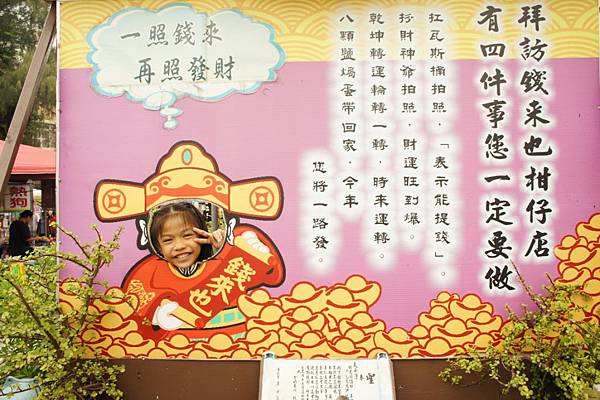 拜訪錢来也柑仔店
有四件事您一定要做
扛瓦斯桶拍照，「表示能提錢」。
行財神爺拍照，財運旺到爆。
乾坤轉運輪轉一轉，時来運轉。
八顆鹽焗蛋帶回家，今年
您將一路發。
一照錢來
再照發財
錢來也
熱狗
聖